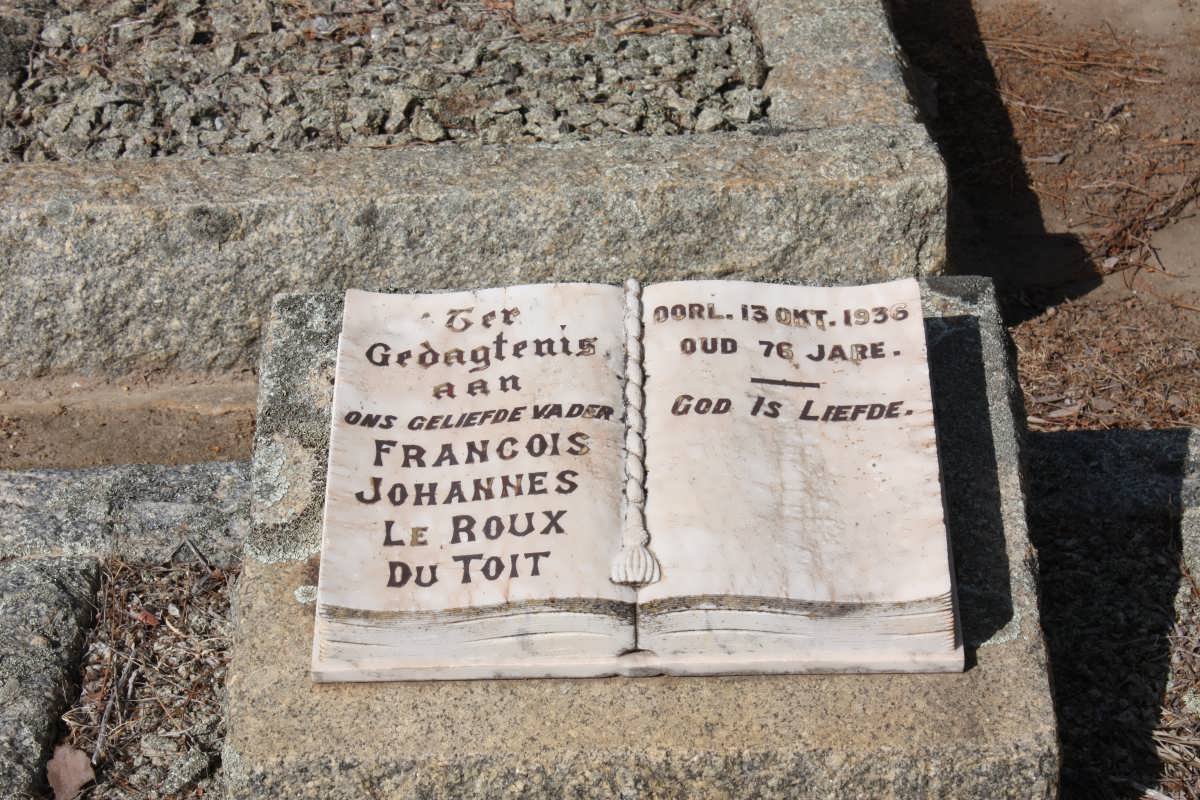 Ter
Gedagtenis
aan
ONS GELIEFDE VADER
FRANCOIS
JOHANNES
LE ROUX
DU TOIT
OORL. 13 OKT. 1936
OUD 76 JARE.
GOD IS LIEFDE.